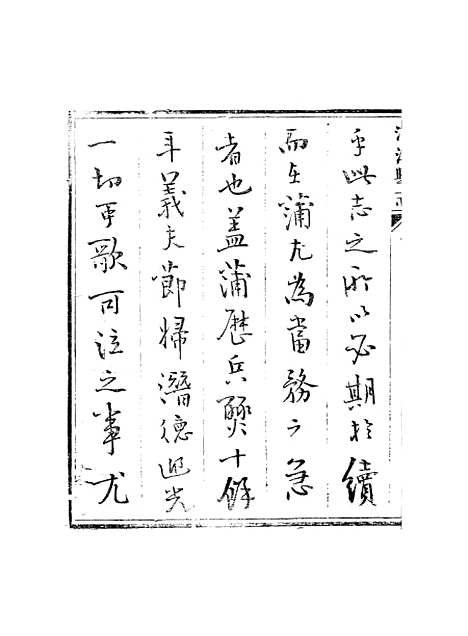 乎此志之所以必期於續
而在蒲尤為當務之急
者也蓋蒲歷兵燹十餘
年義夫節婦潛德迎光
一切可歌可泣之事尤